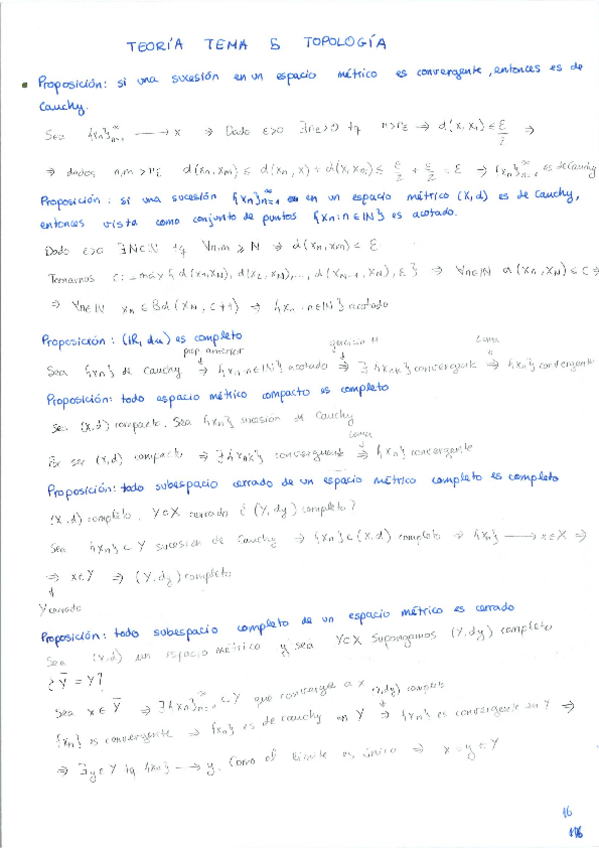 TEORÍA TEMA 5 TOPOLOGÍA
• Proposición: si una sucesión en un espacio métrico es convergente, entonces es de
Cauchy.
Sea {xn}∞n=1 → x ⇒ Dado ε>0 ∃nε>0 tq n>nε ⇒ d(x,xn) ≤ ε/2 ⇒
⇒ dados n,m>nε d(xn,xm) ≤ d(xn,x)+d(x,xm) ≤ ε/2 + ε/2 = ε ⇒ {xn}∞n=1 es de Cauchy
Proposición: si una sucesión {xn}∞n=1 en un espacio métrico (X,d) es de Cauchy,
entonces vista como conjunto de puntos {xn: n∈ℕ} es acotado.
Dado ε>0 ∃N∈ℕ tq ∀n,m ≥ N ⇒ d(xn,xm) < ε
Tomamos C:=max{d(x1,xN), d(x2,xN),..., d(xN-1,xN), ε} ⇒ ∀n∈ℕ d(xn,xN) ≤ C ⇒
⇒ ∀n∈ℕ xn ∈ Bd(xN, C+1) ⇒ {xn: n∈ℕ} acotado
Proposición: (ℝ, du) es completo
prop anterior ejercicio Lema
Sea {xn} de Cauchy ⇒ {xn: n∈ℕ} acotado ⇒ ∃{xnk} convergente ⇒ {xn} convergente
Proposición: todo espacio métrico compacto es completo
Sea (X,d) compacto. Sea {xn} sucesión de Cauchy
Lema
Por ser (X,d) compacto ⇒ ∃{xnk} convergente ⇒ {xn} convergente
Proposición: todo subespacio cerrado de un espacio métrico completo es completo
(X,d) completo, Y⊂X cerrado ¿(Y,dy) completo?
Sea {xn} ⊂ Y sucesión de Cauchy ⇒ {xn} ⊂ (X,d) completo ⇒ {xn} → x∈X ⇒
⇒ x∈Y ⇒ (Y,dy) completo
Y cerrado
Proposición: todo subespacio completo de un espacio métrico es cerrado
Sea (X,d) un espacio métrico y sea Y⊂X Supongamos (Y,dy) completo
¿Ȳ = Y?
Sea x∈Ȳ ⇒ ∃{xn}∞n=1 ⊂ Y que converge a x (Y,dy) completo
{xn} es convergente ⇒ {xn} es de Cauchy en Y ⇒ {xn} es convergente en Y ⇒
⇒ ∃y∈Y tq {xn} → y. Como el límite es único ⇒ x=y∈Y
16